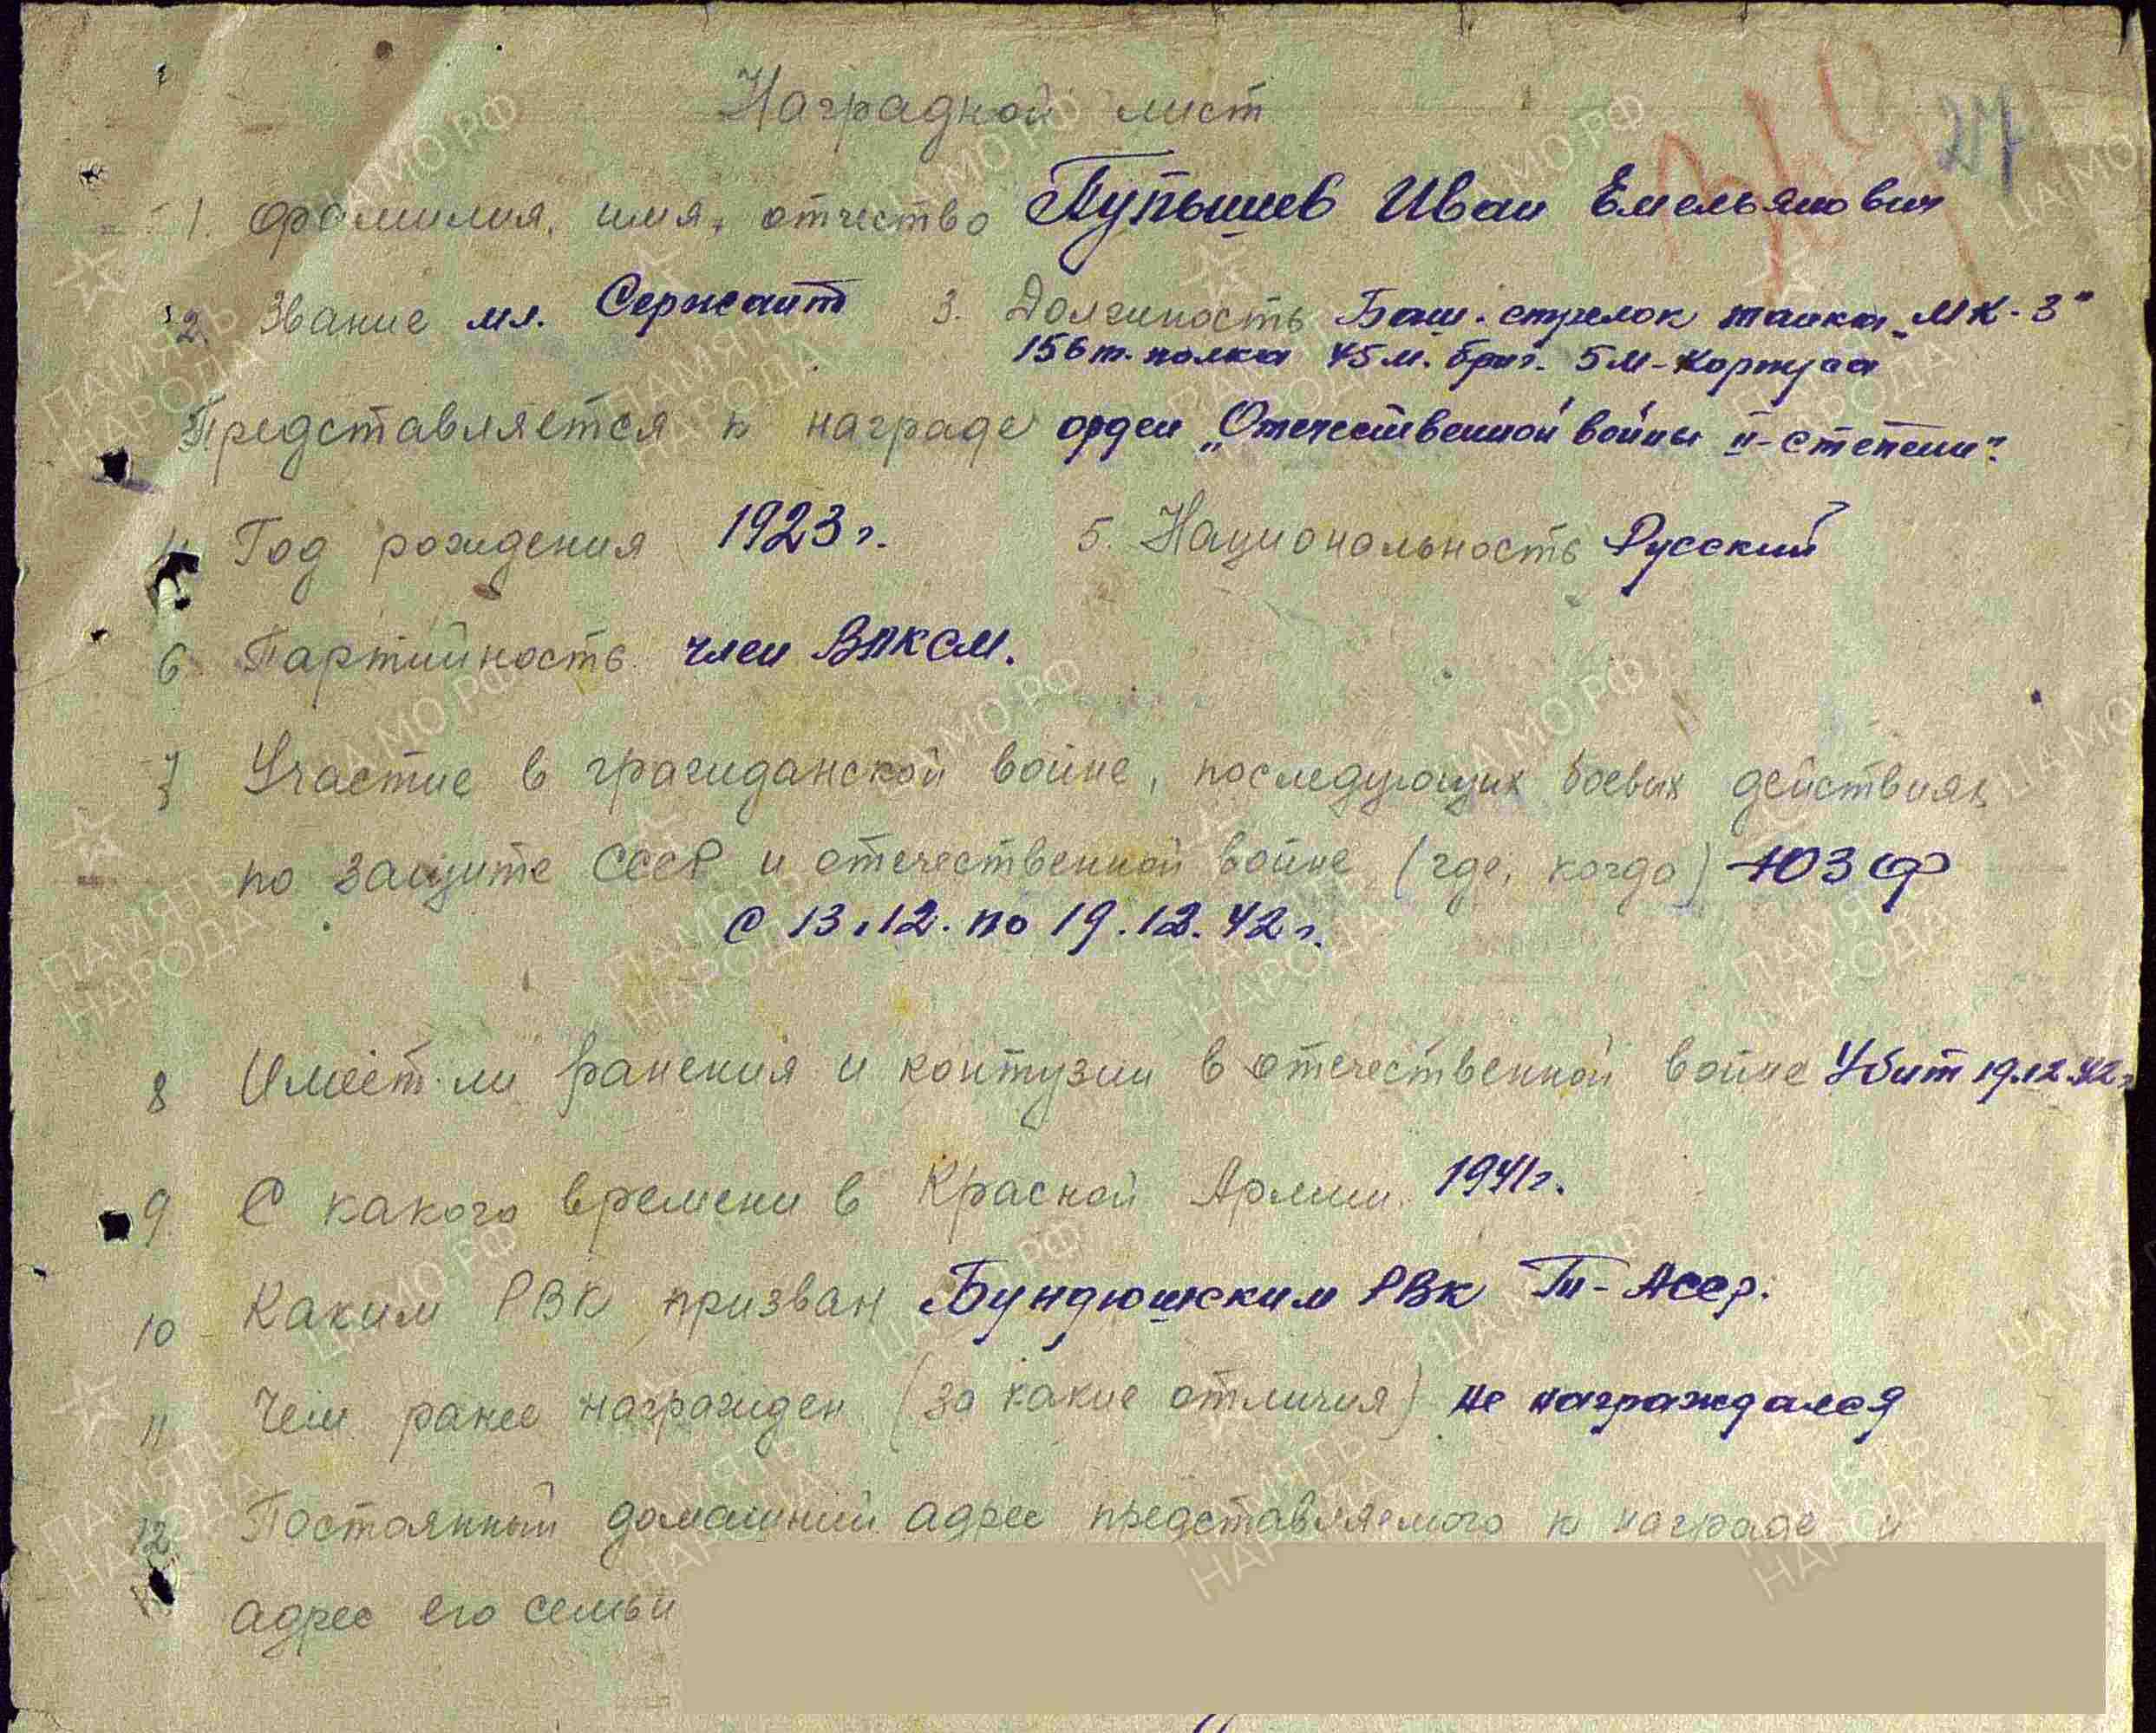 Наградной лист
1. Фамилия, имя, отчество Пупышев Иван Емельянович
2. Звание мл. Сержант 3. Должность Баш. стрелок танка „МК-3"
156 т. полка 45 м. бриг. 5 м-корпуса
Представляется к награде орден „Отечественной войны II-степени".
4. Год рождения 1923 г. 5. Национальность Русский
6 Партийность член ВЛКСМ.
7 Участие в гражданской войне, последующих боевых действиях
по защите СССР и отечественной войне (где, когда) ЮЗФ
с 13.12. по 19.12.42 г.
8 Имеет ли ранения и контузии в отечественной войне Убит 19.12.42 г
9 С какого времени в Красной Армии 1941 г.
10 Каким РВК призван Бундюшским РВК Т-Асср.
11 Чем ранее награжден (за какие отличия) не награждался
12 Постоянный домашний адрес представляемого к награде и
адрес его семьи
ПАМЯТЬ НАРОДА
ЦАМО.РФ